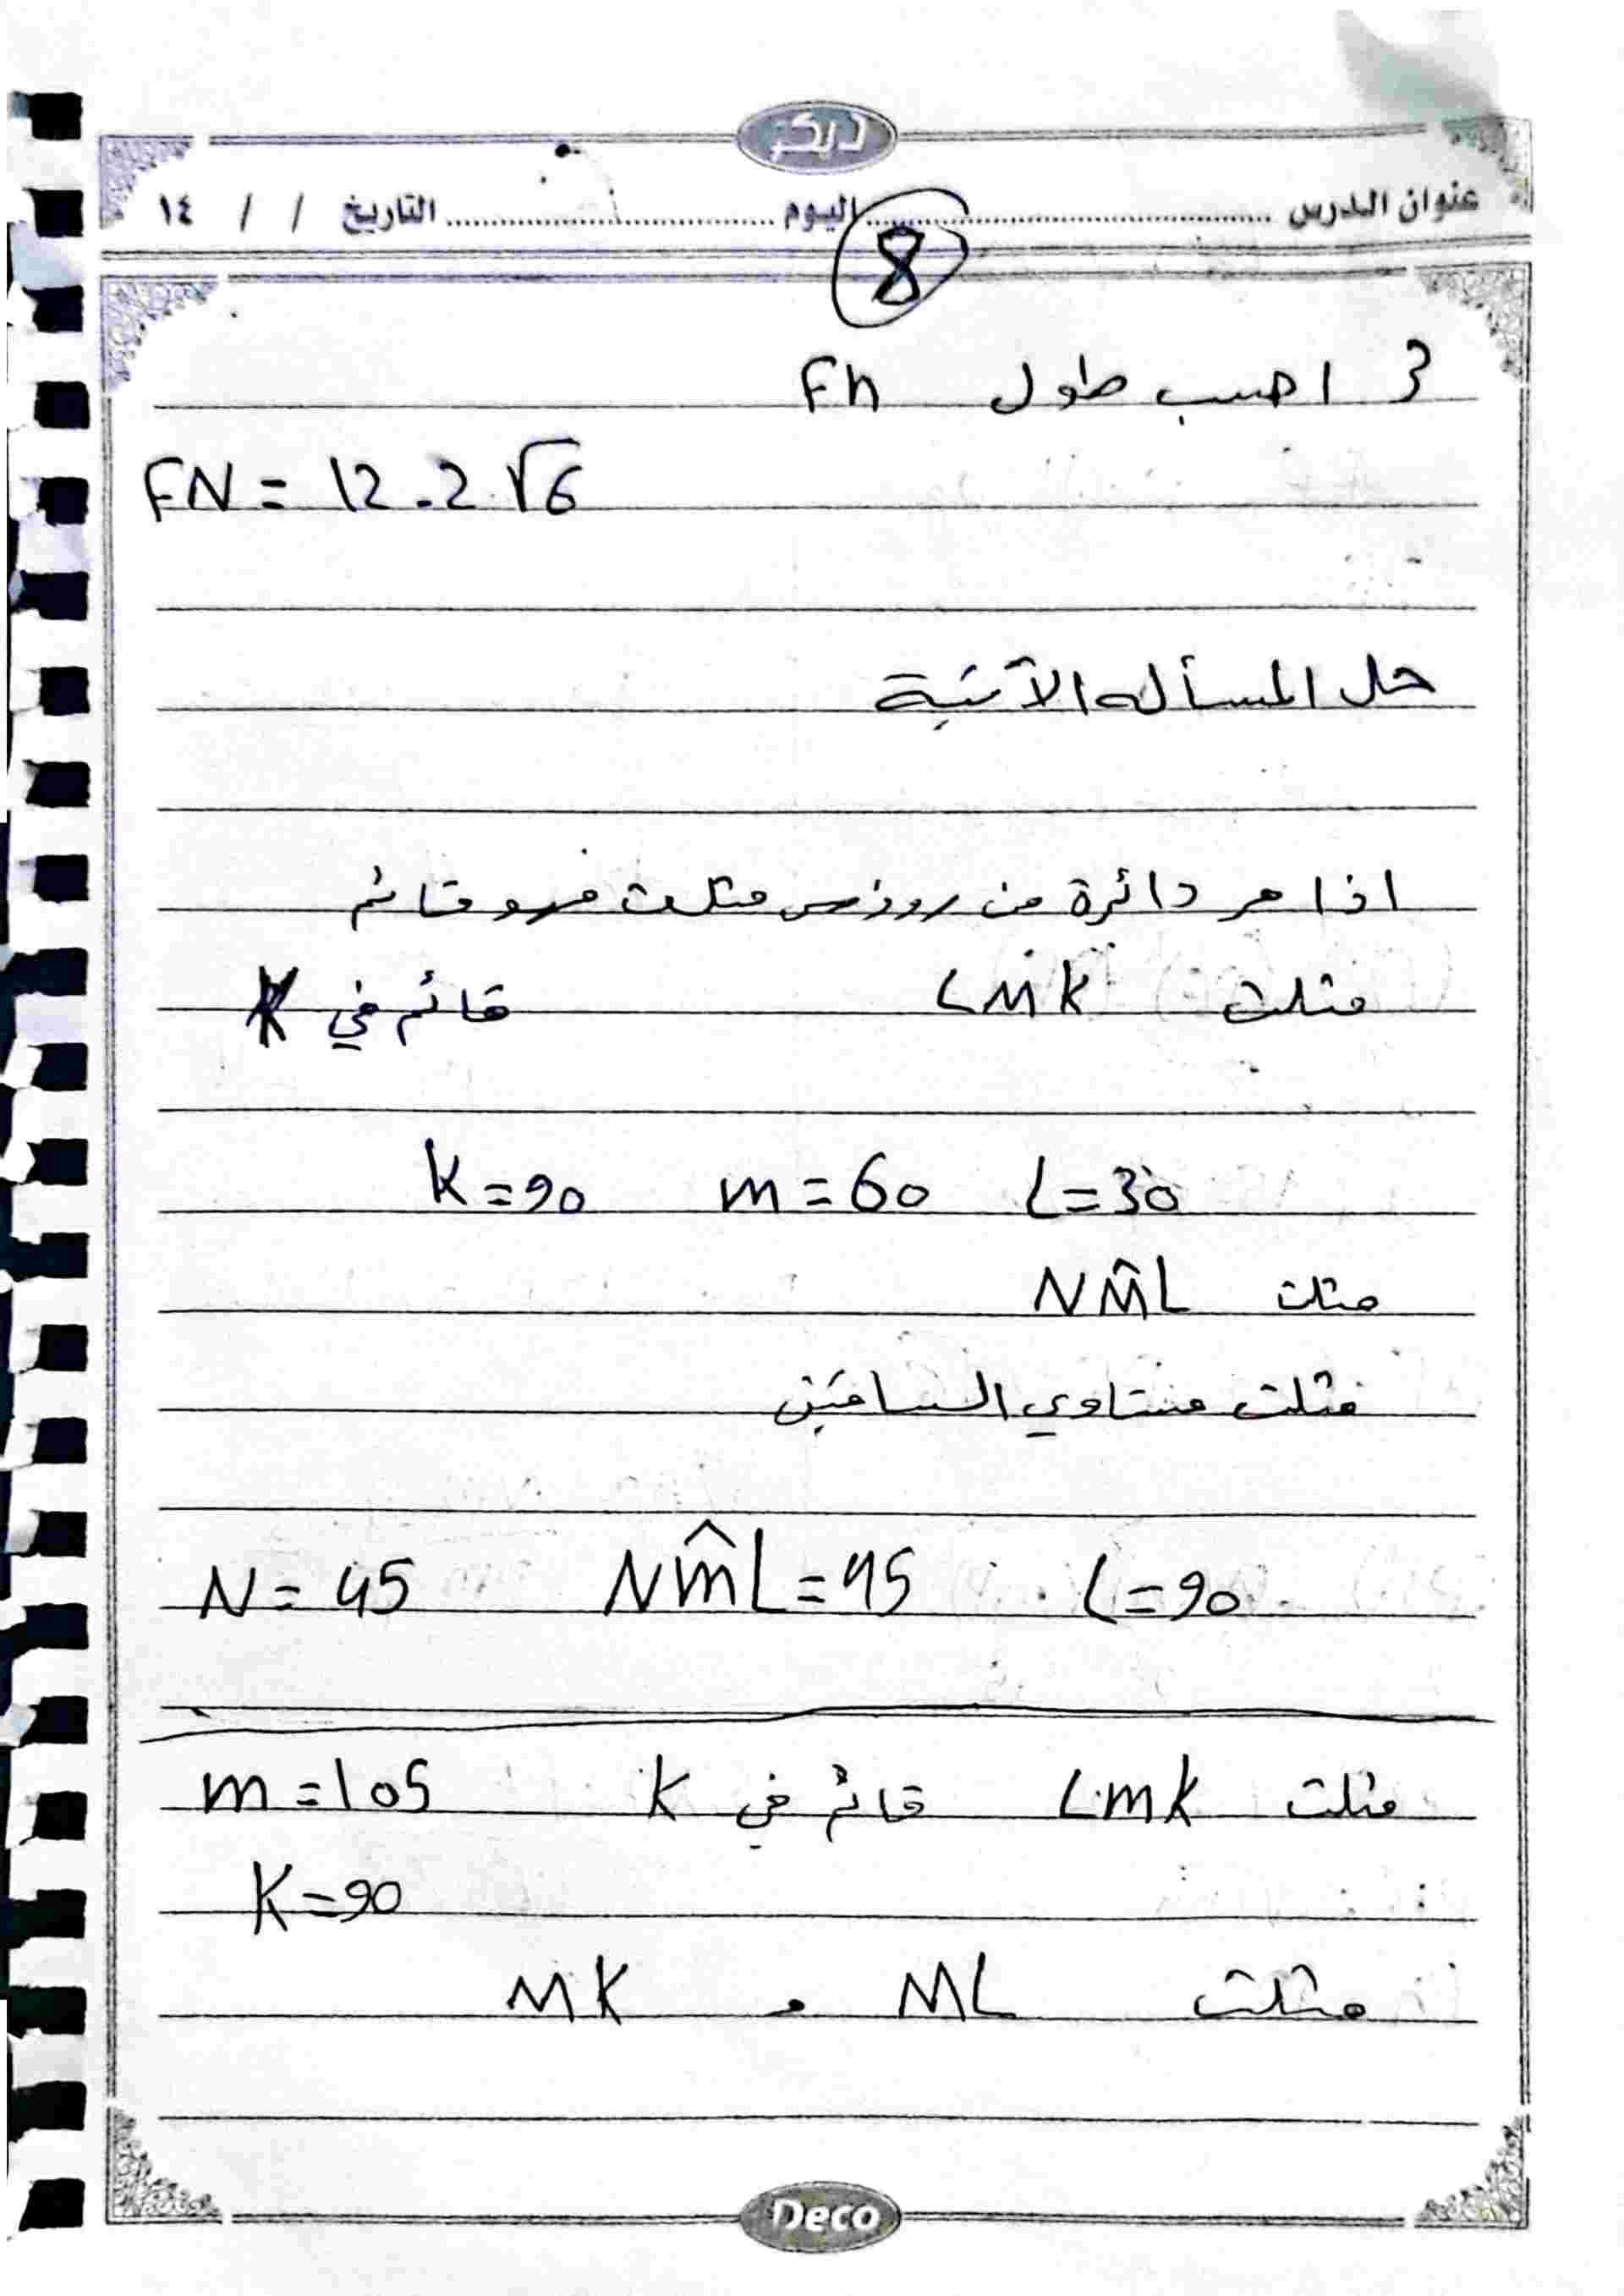 ديكو
عنوان الدرس ........ اليوم ........ التاريخ / / ١٤
8
3 احسب طول Fn
FN = 12 - 2√6
حل المسأله الآتية
اذا مر دائرة من رووس مثلث فهو قائم
مثلث LMK قائم في K
L=30 m=60 k=90
مثلث NM̂L
مثلث متساوي الساقين
L=90 Nm̂L=45 N=45
مثلث LmK قائم في K m=105
K=90
مثلث ML و MK
Deco